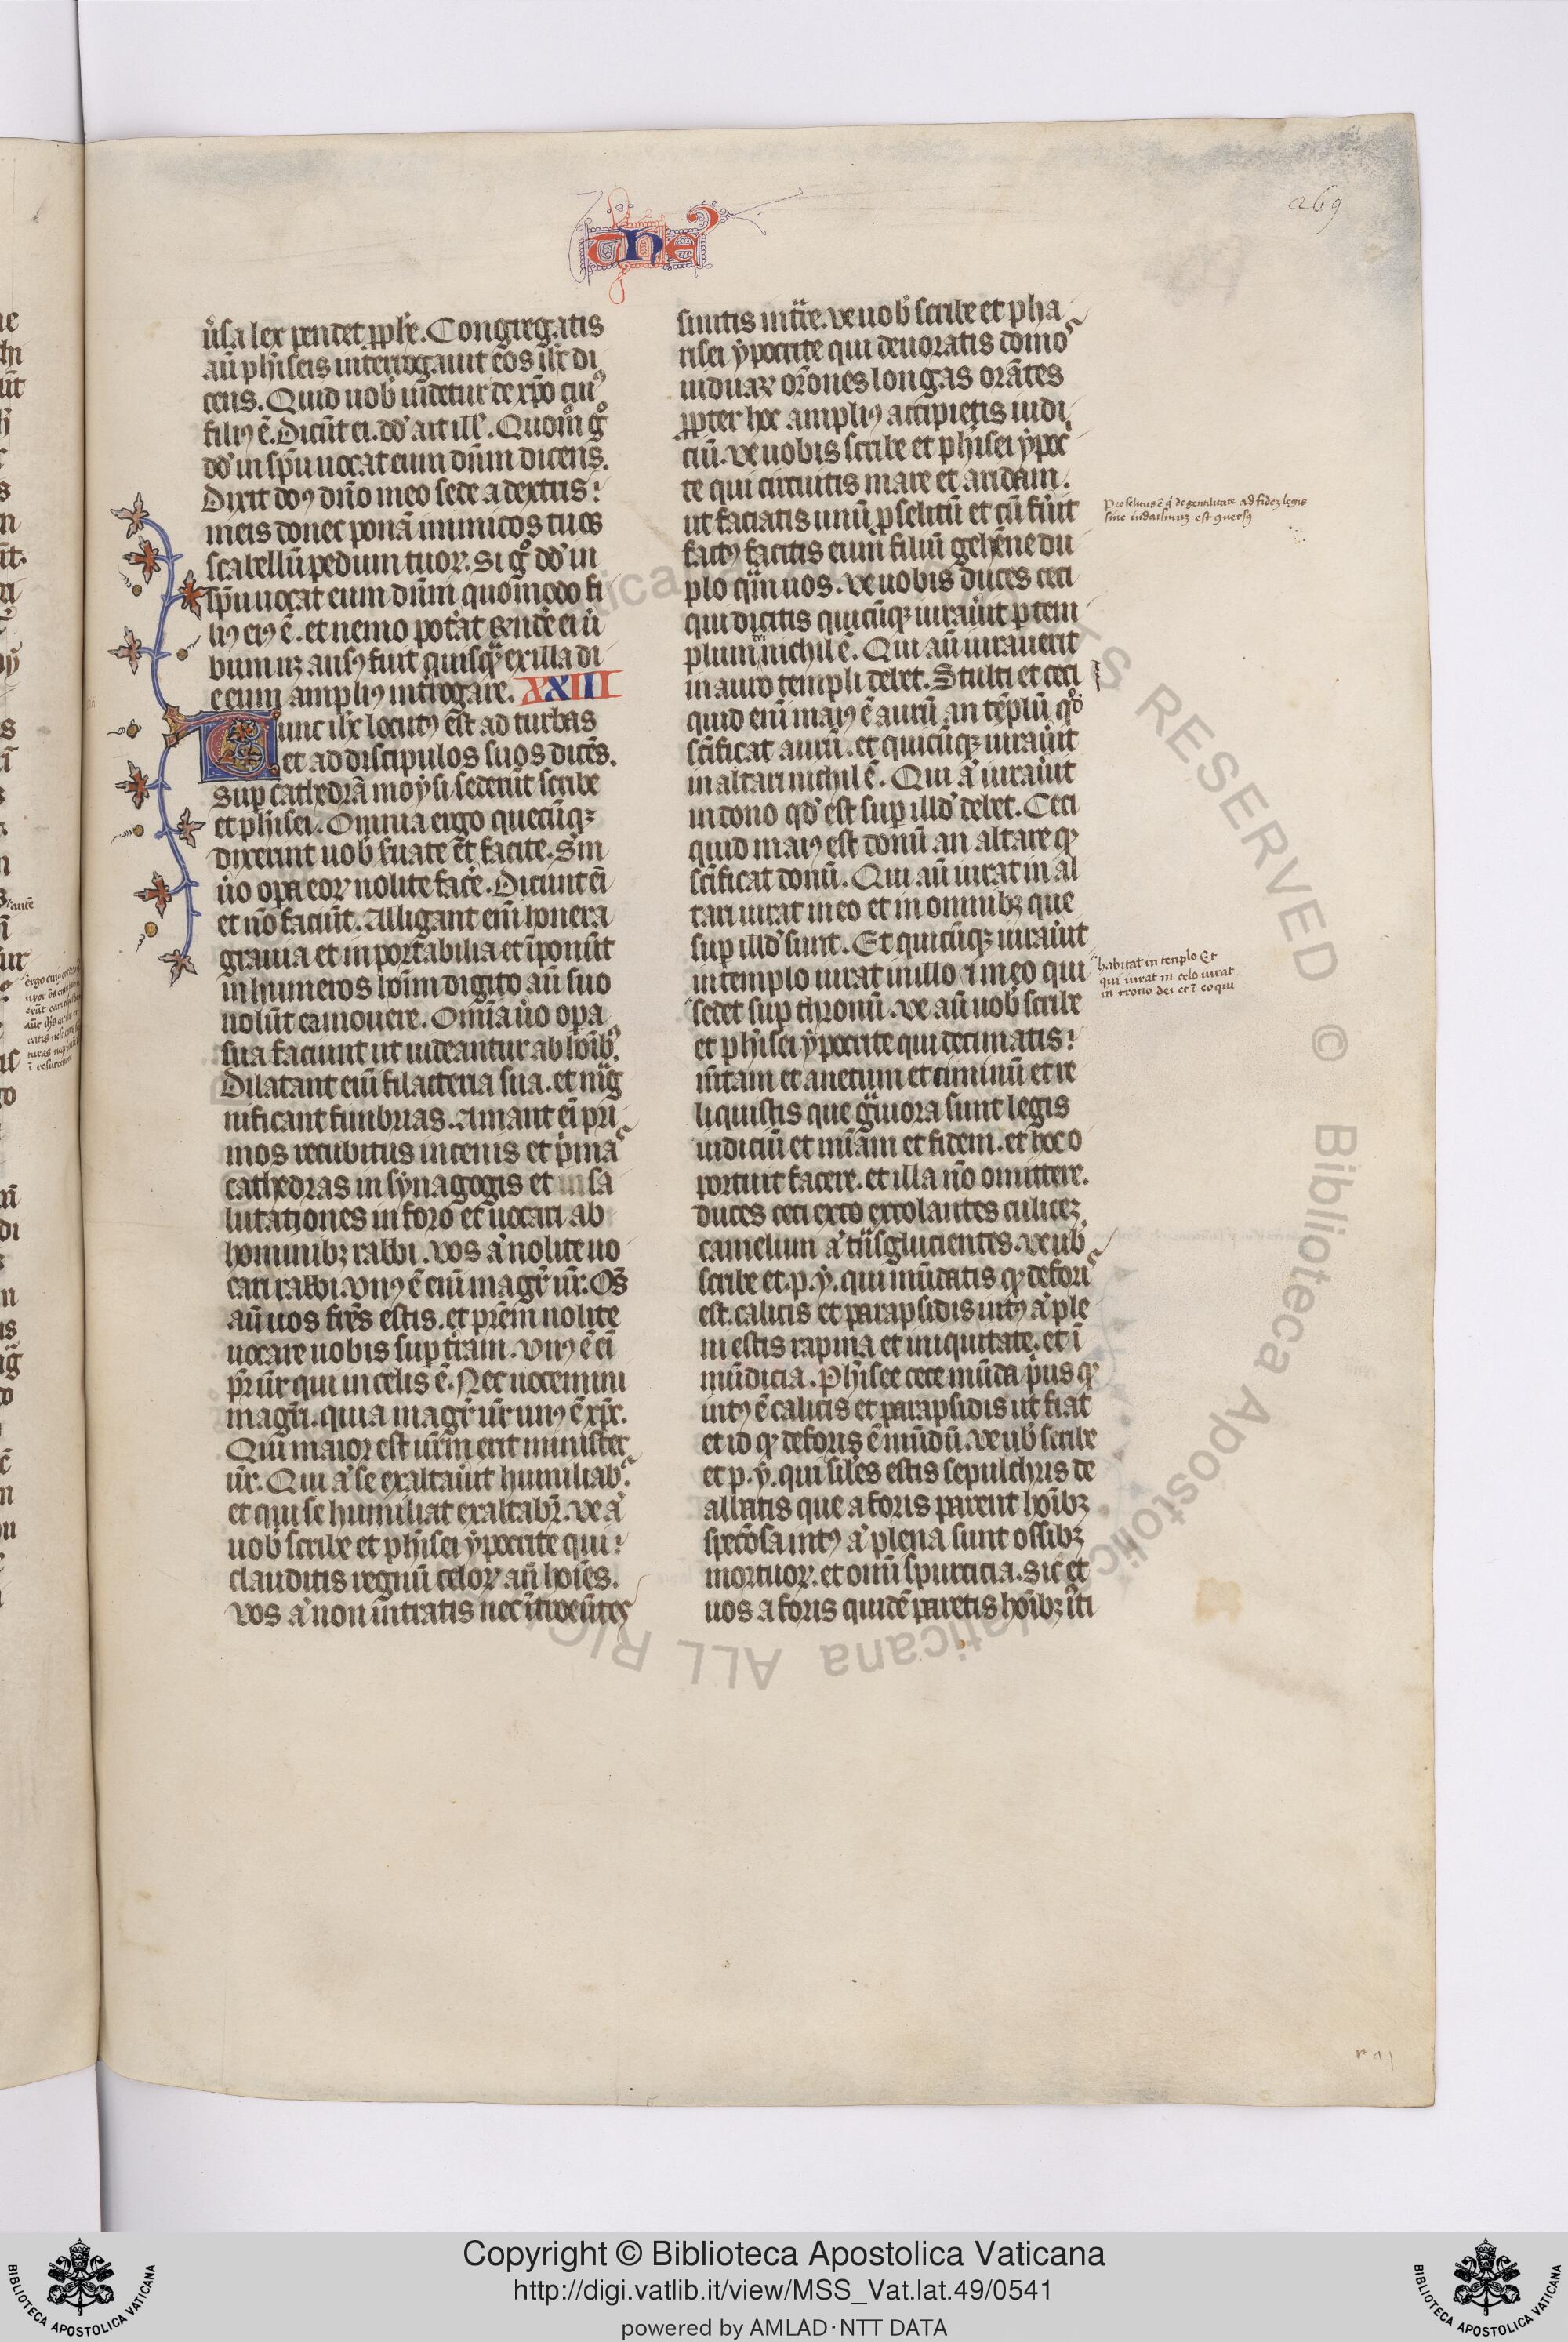 the
269
ũsa lex pendet. ꝓph̃e. Congregatis
aũ ph̃iseis interrogauit eos ih̃c di
cens. Quid uob̾ uidetur de xp̃o cui⁹
fili⁹ ẽ. Dicũt ei. dd̾. ait ill̾. Quom̊ gͦ
dd̾ in sp̃u uocat eum dñm dicens.
Dixit dñ⁹ dño meo sede a dextris
meis donec ponã inimicos tuos
scabellũ pedum tuoꝝ. Si gͦ dd̾ in
sp̃u uocat eum dñm quom̃odo fi
li⁹ ei⁹ ẽ. et nemo pot̾at rñde̾ ei ũ
bum neqꝫ aus⁹ fuit quisq̃ꝫ ex illa di
e eum ampli⁹ int̾rogare. XXIII
Tunc ih̃c locut⁹ est ad turbas
et ad discipulos suos dicẽs.
Sup̱ cathedrã moysi sederũt scribe
et ph̾isei. Omnia ergo quecũqꝫ
dixerint uob̾ s̾uate et facite. S̾m
ũo oꝑa eoꝝ nolite face̾. Dicunt ei̾
et nõ faciũt. Alligant eni̾ honera
grauia et inportabilia et ĩponũt
in humeros hoĩm digito aũ suo
nolũt ea mouere. Omĩa ũo oꝑa
sua faciunt ut uideantur ab hoĩb⁹.
Dilatant eni̾ filacteria sua. et mag̾
nificant fimbrias. Amant ei̾ pri
mos recubitus in cenis et p̾mas
cathedras in synagogis et sa
lutationes in foro et uocari ab
hominibꝫ rabbi. Vos a̾ nolite uo
cari rabbi. Vn⁹ ẽ eni̾ magr̃ ur̃. Oẽs
aũ uos fr̃es estis. et pr̃em nolite
uocare uobis sup̱ t̾ram. Vn⁹ ẽ ei̾
pr̃ ur̃ qui in celis ẽ. Nec uocemini
magr̃i. quia magr̃ ur̃ un⁹ ẽ xp̃c.
Qui maior est ur̃m erit minister
ur̃. Qui a̾ se exaltau̾it humiliab̾
et qui se humiliat exaltabr̃. Ve a̾
uob̾ scribe et ph̾isei ypocrite qui
clauditis regnũ celoꝝ añ hoĩes.
Vos a̾ non intratis nec ĩtroeũtes
sinitis int̾re. Ve uob̾ scribe et pha
risei ypocrite qui deuoratis domos
uiduaꝝ or̃ones longas orãtes
ꝓpter hoc ampli⁹ accipietis iudi
ciũ. Ve uobis scribe et ph̾isei ypoc̾
te qui circuitis mare et aridam.
ut faciatis unũ ꝓselitũ et cũ fũit
fact⁹ facitis eum filiũ gehẽne du
plo q̃m uos. Ve uobis duces ceci
qui dicitis quicũqꝫ iurau̾it ꝑ tem
plum nichil ẽ. Qui aũ iurauerit
in auro templi debet. Stulti et ceci
quid eni̾ mai⁹ ẽ aurũ an tẽplũ qd̾
scĩficat aurũ. et quicũqꝫ iurau̾it
in altari nichil ẽ. Qui a̾ iurau̾it
in dono qd̾ est sup̱ illd̾ debet. Ceci
quid mai⁹ est donũ an altare qd̾
scĩficat donũ. Qui aũ iurat in al
tari iurat in eo et in omnibꝫ que
sup̱ illd̾ sunt. Et quicũqꝫ iurau̾it
in templo iurat in illo ⁊ in eo qui
sedet sup̱ thronũ. Ve aũ uob̾ scribe
et ph̾isei ypocrite qui decimatis
m̃tam et anetum et ciminũ et re
liquistis que g̾uiora sunt legis
iudiciũ et mĩam et fidem. et hec o
portuit facere. et illa nõ omittere.
Duces ceci exco excolantes culicez
camelum a̾ t̾nsglucientes. Ve ub̾
scribe et. p. y. qui mũdatis qd̾ de foris
est. calicis et parapsidis int⁹ a̾ ple
ni estis rapina et iniquitate. et ĩ
mũdicia. Ph̾isee cece mũda p̾us qd̾
int⁹ ẽ calicis et parapsidis ut fiat
et id qd̾ deforis ẽ mũdũ. Ve ub̾ scribe
et p. y. qui sil̾es estis sepulchris de
albatis que a foris parent hoĩbꝫ
speciosa int⁹ a̾ plena sunt ossibꝫ
mortuoꝝ. et omi̾ spurcicia. Sic et
uos a foris quidẽ paretis hoĩbꝫ iti
Proselitus ẽ q̾ de gentilitate ad fidez legis
siue iudaismuz est ꝯuersꝰ
habitat in templo Et
qui iurat in celo iurat
in trono dei et ĩ eo qui
Copyright © Biblioteca Apostolica Vaticana
http://digi.vatlib.it/view/MSS_Vat.lat.49/0541
powered by AMLAD·NTT DATA
BIBLIOTECA APOSTOLICA VATICANA
BIBLIOTECA APOSTOLICA VATICANA